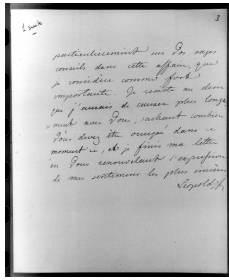 3
particulièrement vos sages
conseils dans cette affaire, que
je considère comme fort
importante. Je résiste au désir
que j'aurais de causer plus longue
-ment avec Vous, sachant combien
Vous devez être occupé dans ce
moment ci, et je finis ma lettre
en Vous renouvelant l'expression
de mes sentiments les plus sincères
Leopold